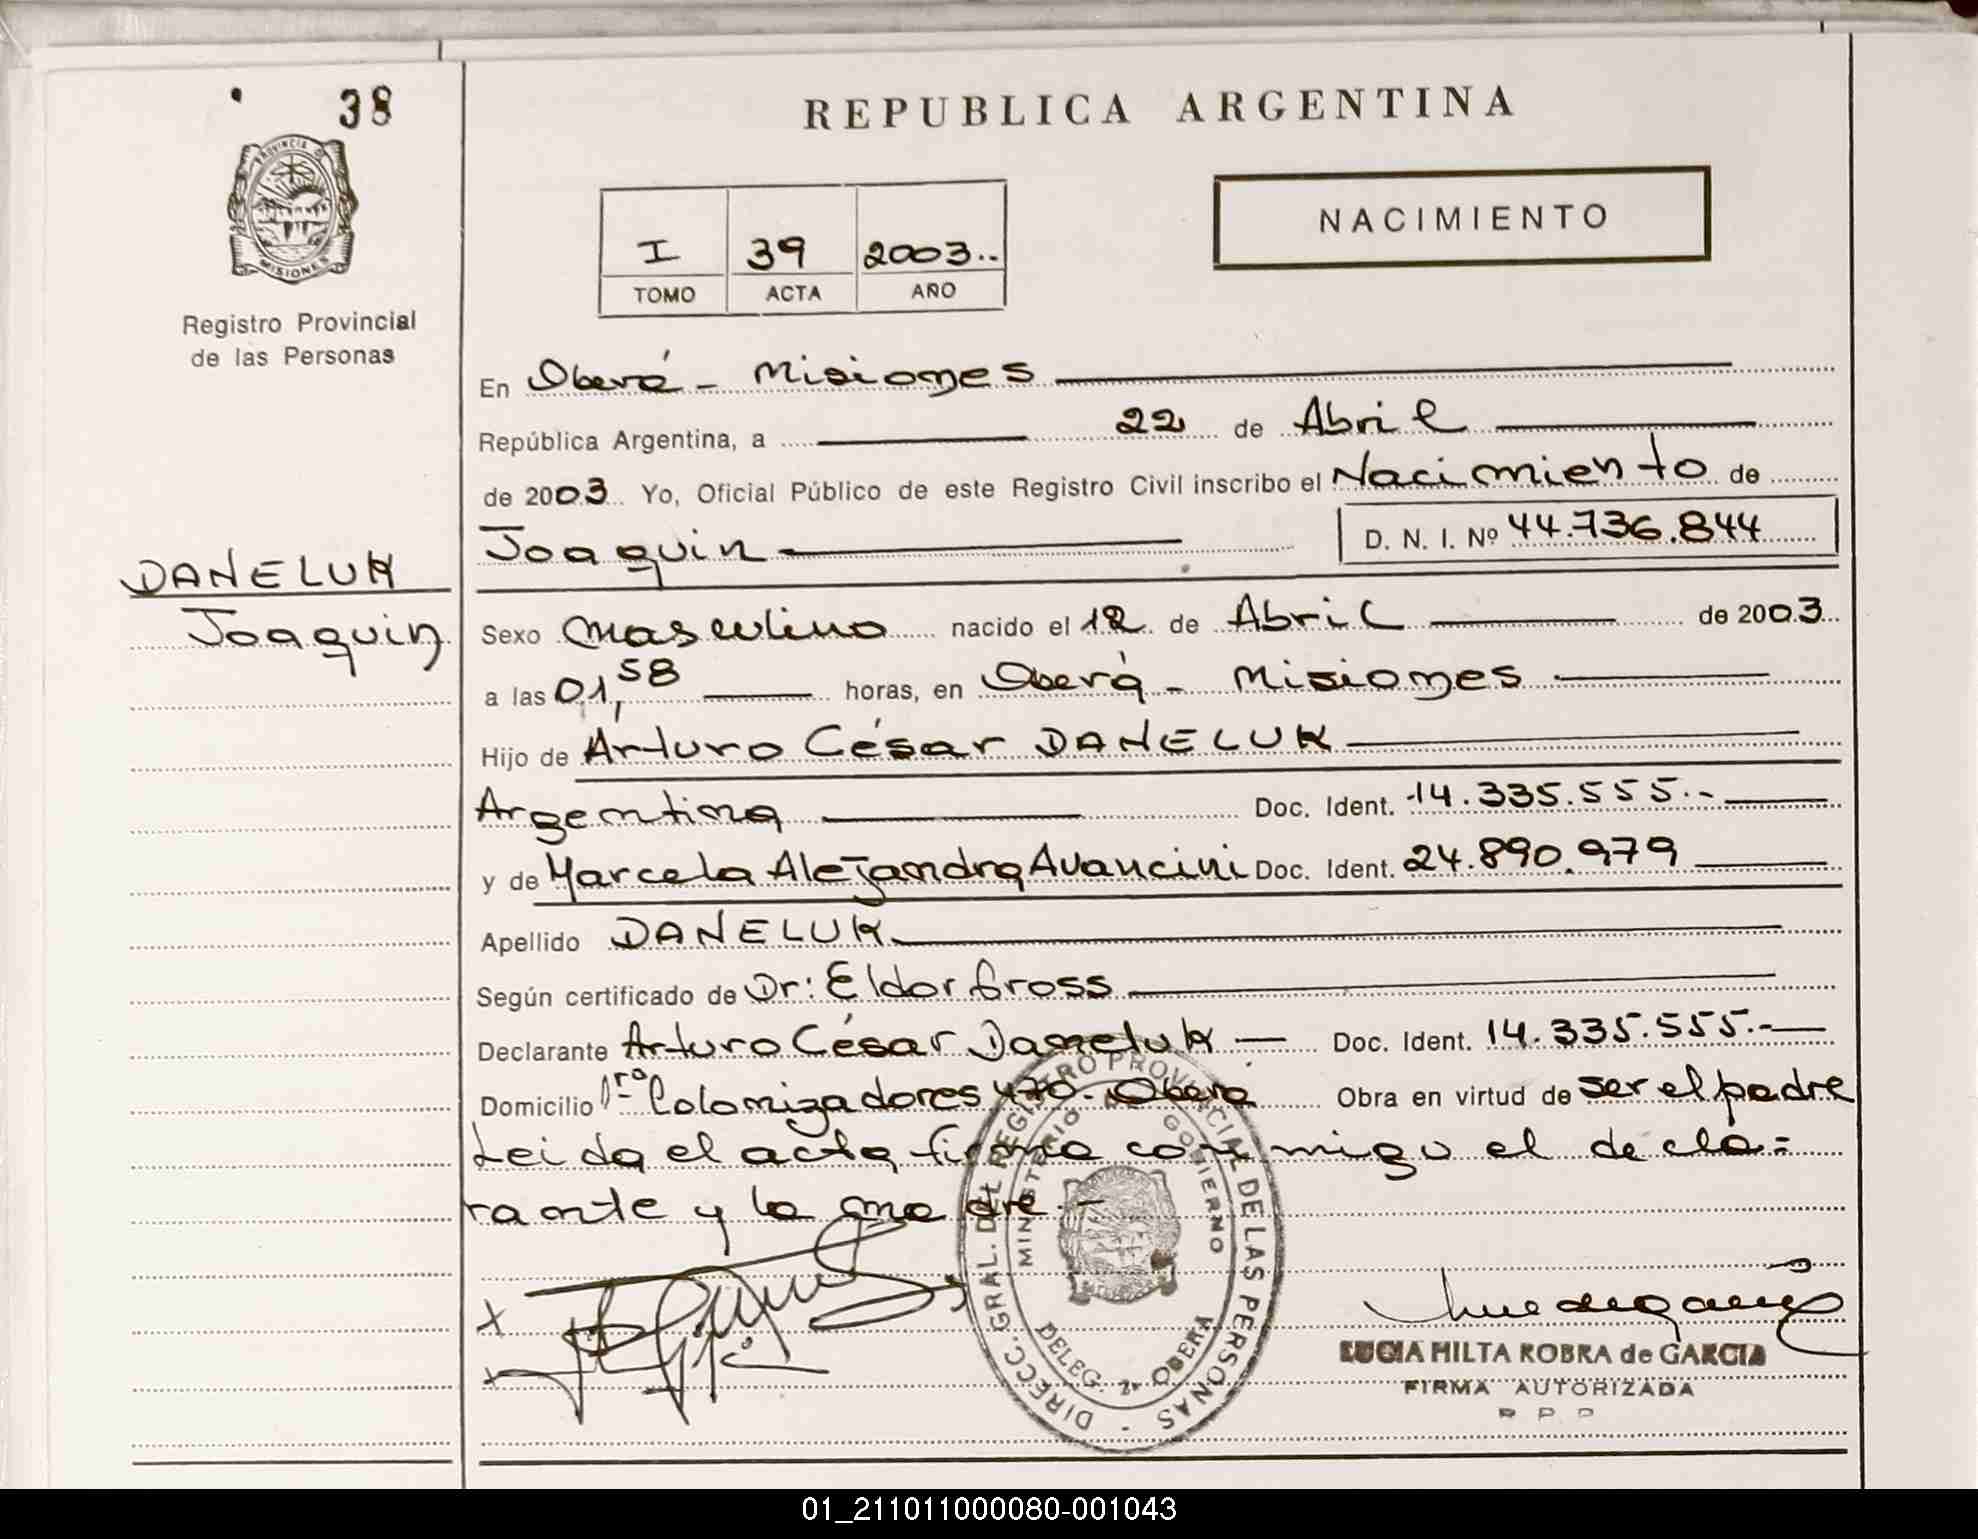 38
PROVINCIA DE
MISIONES
Registro Provincial
de las Personas
DANELUK
Joaquin
REPUBLICA ARGENTINA
I 39 2003..
TOMO ACTA AÑO
NACIMIENTO
En Oberá - Misiones
República Argentina, a 22 de Abril
de 2003 Yo, Oficial Público de este Registro Civil inscribo el Nacimiento de
Joaquin D. N. I. Nº 44.736.844
Sexo Masculino nacido el 12 de Abril de 2003
a las 01,58 horas, en Oberá - Misiones
Hijo de Arturo César DANELUK
Argentina Doc. Ident. 14.335.555.-
y de Marcela Alejandra Avancini Doc. Ident. 24.890.979
Apellido DANELUK
Según certificado de Dr: Eldor Gross
Declarante Arturo César Daneluk Doc. Ident. 14.335.555.-
Domicilio 1ros Colonizadores 470. Oberá Obra en virtud de ser el padre
Leida el acta firma conmigo el decla=
rante y la madre.-
DIRECC. GRAL. DEL REGISTRO PROVINCIAL DE LAS PERSONAS -
MINISTERIO DE GOBIERNO
DELEG. 2ª OBERA
LUCIA HILTA ROBRA de GARCIA
FIRMA AUTORIZADA
R P P
01_211011000080-001043